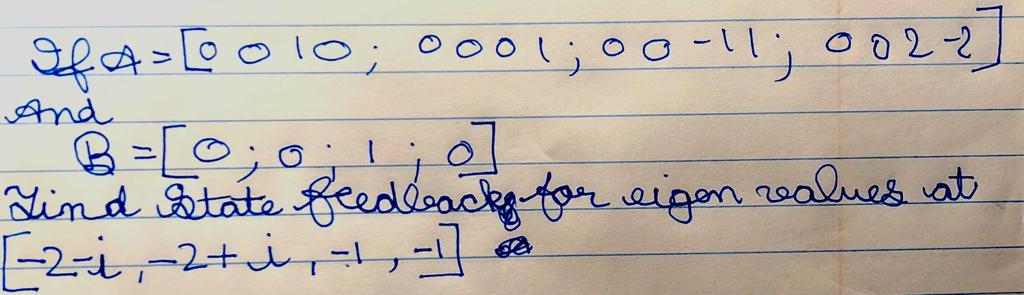 If A = [0 0 1 0 ; 0 0 0 1 ; 0 0 -1 1 ; 0 0 2 -2]
And
B = [0 ; 0 ; 1 ; 0]
Find State feedback for eigen values at
[-2-i , -2+i , -1 , -1]